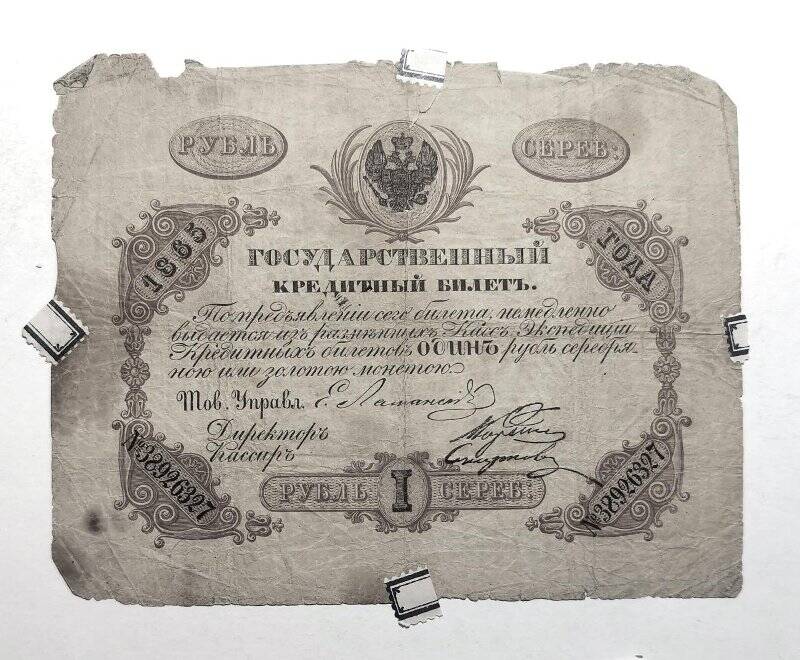 РУБЛЬ
СЕРЕБ:
1865
ГОДА
ГОСУДАРСТВЕННЫЙ
КРЕДИТНЫЙ БИЛЕТЪ.
По предъявленіи сего билета, немедленно
выдается изъ размѣнныхъ Кассъ Экспедиціи
Кредитныхъ билетовъ ОДИНЪ рубль серебря-
ною или золотою монетою.
Тов. Управл. Е. Ламанскій
Директоръ
Кассиръ
№38926327
№38926327
РУБЛЬ I СЕРЕБ: